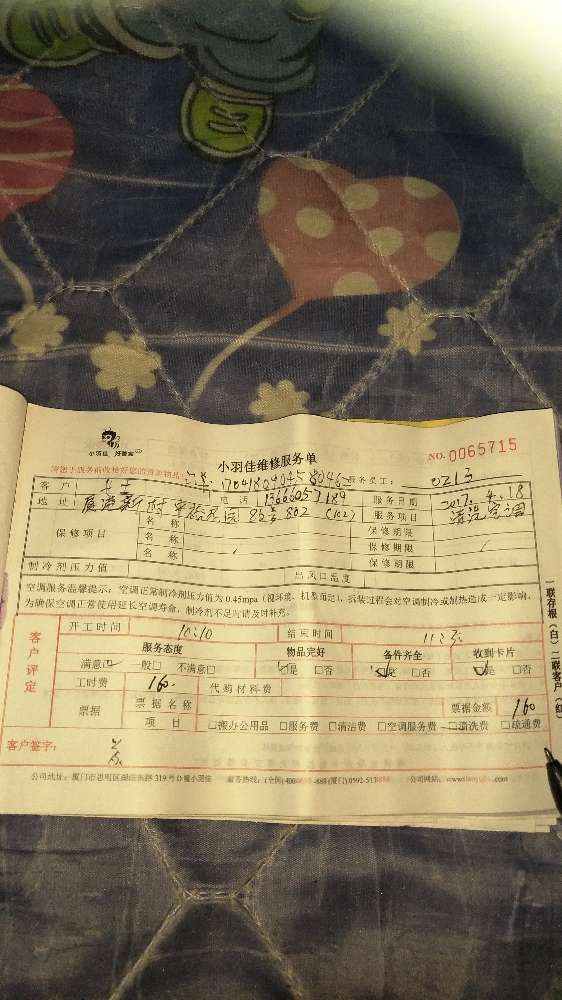 小羽佳 好管家
小羽佳维修服务单
NO. 0065715
请您于服务前收拾好您的贵重物品
服务员工: 0213
客户
地址 电话 服务日期 2017.4.18
8号 802 (102) 服务项目 清洗空调
保修项目 名称 保修期限
名称 保修期限
名称 保修期限
制冷剂压力值 出风口温度
空调服务温馨提示:空调正常制冷剂压力值为0.45mpa(视环境、机型而定),拆装过程会对空调制冷或制热造成一定影响,
为确保空调正常使用延长空调寿命,制冷剂不足时请及时补充。
客户评定
开工时间 10:10 结束时间
服务态度 物品完好 备件齐全 收到卡片
满意☑ 一般□ 不满意□ ☑是 □否 ☑是 □否 ☑是 □否
工时费 160. 代购材料费
票据 票据名称 票据金额 160
项目 □搬办公用品 □服务费 □清洁费 □空调服务费 □清洗费 □疏通费
客户签字:
公司地址:厦门市思明区 319号D幢小羽佳 服务热线:(全国)400 (厦门)0592-513 公司网站:www.
一联存根(白)二联客户(红)